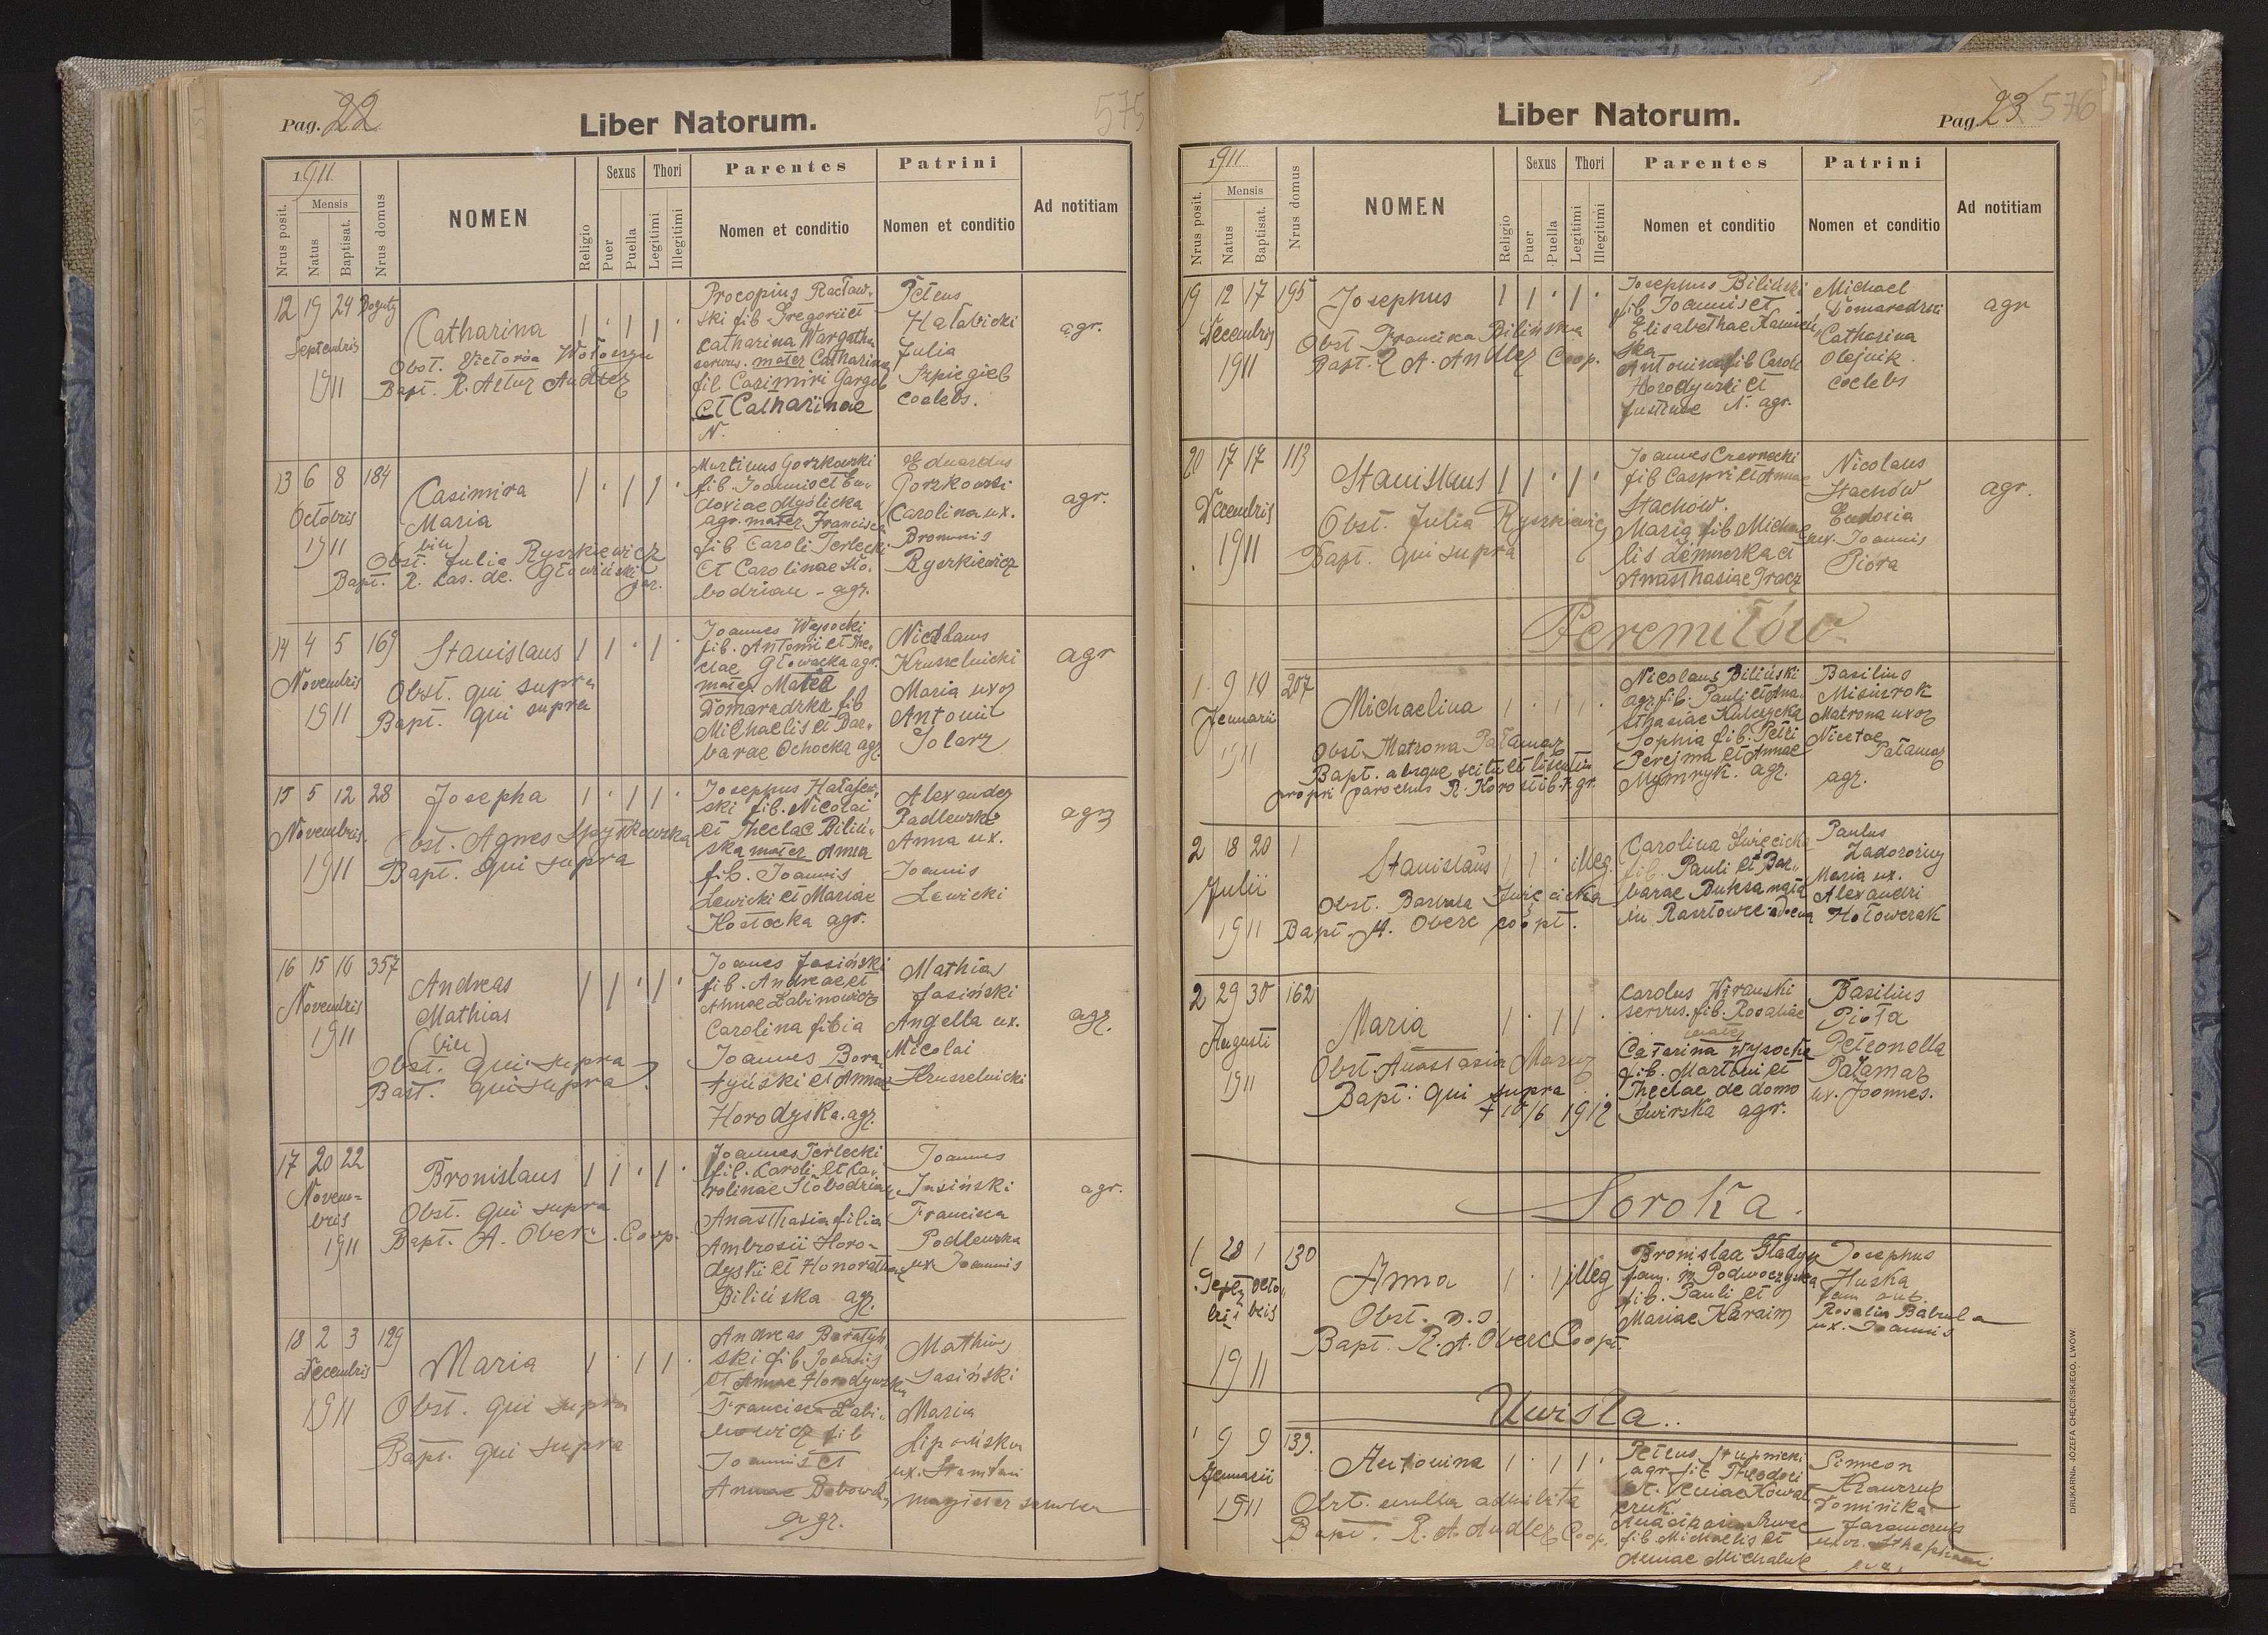 Pag. 22
Liber Natorum.
575
1911
Nrus posit.
Mensis
Natus
Baptisat.
Nrus domus
NOMEN
Religio
Sexus
Puer
Puella
Thori
Legitimi
Illegitimi
Parentes
Nomen et conditio
Patrini
Nomen et conditio
Ad notitiam
12 19 24
Septembris
1911
Catharina
Obst. Victoria Wołoszyn
Bapt. R. Artur Andler
Procopius Racław-
ski fil Gregorii et
Catharina Wargatha
servus. mater Catharina
fil. Casimiri Gargol
et Catharinae
N.
Petrus
Halabicki
Julia
Szpiegiel
coelebs.
agr.
13 6 8 184
Octobris
1911
Casimira
Maria
(bin)
Obst. Julia Ryszkiewicz
Bapt. R. Cas. de Głowiński par.
Martinus Gorzkowski
fil. Joannis et Eu-
doxiae Myślicka
agr. mater Francisca
fil Caroli Terlecki
et Carolinae Sło-
bodzian - agr.
Eduardus
Gorzkowski
Carolina ux.
Brononis
Ryszkiewicz
agr.
14 4 5 169
Novembris
1911
Stanislaus
Obst. qui supra
Bapt. qui supra
Joannes Wysocki
fil. Antonii et The-
clae Głowacka agr.
mater
Domaradzka fil
Michaelis et Bar-
barae Ochocka agr.
Nicolaus
Krusselnicki
Maria uxor
Antonii
Solarz
agr
15 5 12 28
Novembris.
1911
Josepha
Obst. Agnes Spytkowska
Bapt. qui supra
Josephus Hałajew-
ski fil. Nicolai
et Theclae Biliń-
ska mater Anna
fil. Joannis
Lewicki et Mariae
Kostecka agr.
Alexander
Padlewski
Anna ux.
Joannis
Lewicki
agr
16 15 16 357
Novembris
1911
Andreas
Mathias
(bin)
Obst. qui supra
Bapt. qui supra
Joannes Jasiński
fil. Andreae et
Annae Labinowicz
Carolina filia
Joannes Bora
tyński et Annae
Horodyska. agr.
Mathias
Jasiński
Angella ux.
Nicolai
Krusselnicki
agr.
17 20 22
Novem-
bris
1911
Bronislaus
Obst. qui supra
Bapt. A. Oberc. Coop.
Joannes Terlecki
fil. Caroli et Ca-
rolinae Słobodzian
Anasthasia filia
Ambrosii Horo-
dyski et Honorathae
Bilińska agr.
Joannes
Jasiński
Francisca
Podlewska
ux Joannis
agr.
18 2 3 129
Decembris
1911
Maria
Obst. qui supra
Bapt. qui supra
Andreas Boratyń
ski fil Joannis
et Annae Horodywska
Francisca Labi-
nowicz fil
Joannis et
Annae Bobowsk
agr.
Mathias
Jasiński
Maria
Lipońska
ux. Stanislai
magister scholae
Liber Natorum.
Pag. 23 576
1911
Nrus posit.
Mensis
Natus
Baptisat.
Nrus domus
NOMEN
Religio
Sexus
Puer
Puella
Thori
Legitimi
Illegitimi
Parentes
Nomen et conditio
Patrini
Nomen et conditio
Ad notitiam
19 12 17 195
Decembris
1911
Josephus
Obst Francisca Bilińska
Bapt. R A. Andler Coop.
Josephus Biliński
fil Joannis et
Elisabethae Kamiń
ska
Antonina fil Caroli
Horodywski et
Justinae N. agr.
Michael
Domaradzki
Catharina
Olejnik
coelebs
agr
20 17 17 113
Decembris
1911
Stanislaus
Obst. Julia Ryszkiewicz
Bapt. qui supra
Joannes Czernecki
fil Caspri et Annae
Stachów.
Maria fil Michae
lis
Anasthasiae Tracz
Nicolaus
Stachów
Eudosia
ux. Joannis
Pióra
agr.
Peremiłów
1 9 10 207
Jannuarii
1911
Michaelina
Obst. Matrona Pałamar
Bapt. absque scitu et licentia
proprii parochus R. Korostil r. gr.
Nicolaus Biliński
agr. fil. Pauli et Ana-
sthasiae Kulczycka
Sophia fil. Petri
Perejma et Annae
Mymryk. agr.
Basilius
Misiurok
Matrona uxor
Nicetae
Pałamar
agr.
2 18 20 1
Julii
1911
Stanislaus
illeg.
Obst. Barbara Święcicka
Bapt. A. Oberc coopt.
Carolina Święcicka
fil. Pauli et Bar-
barae Duksa nata
in Rasztowce
Paulus
Zadorożny
Maria ux.
Alexandri
Hołowczak
2 29 30 162
Augusti
1911
Maria
Obst. Anastasia Mazur
Bapt: qui supra
+ 10/6 1912
Carolus Wiranski
servus. fil. Rosaliae
mater
Catarina Wysocka
fil. Martini et
Theclae de domo
Zwirska agr.
Basilius
Piota
Petronella
Pałamar
ux. Joannes.
Soroka.
1 28 1 130
Septem octo-
bris bris
1911
Anna
illeg
Obst. n. n
Bapt. R. A. Oberc Coopt.
Bronislaa Gładysz
fam. in Podwoczyska
fil. Pauli et
Mariae Karaim
Josephus
Huska
fam
Rosalia Babula
ux. Joannis
Uwisła..
1 9 9 139.
Januarii
1911
Antonina
Obst. nulla adhibita
Bapt. R. A. Andler Coop.
Petrus Stupnicki
agr fil Theodori
et Xeniae Kowal
czuk
fil Michaelis et
Annae Michaluk
Simeon
Krawczuk
Dominika
uxor. Stephani
DRUKARNIA JÓZEFA CHĘCIŃSKIEGO, LWÓW